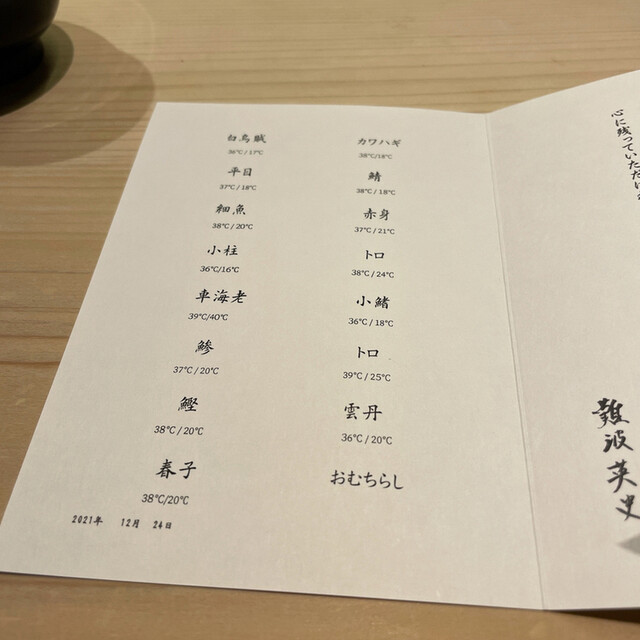 白烏賊
36℃/17℃
平目
37℃/18℃
細魚
38℃/20℃
小柱
36℃/16℃
車海老
39℃/40℃
鰺
37℃/20℃
鰹
38℃/20℃
春子
38℃/20℃
カワハギ
38℃/18℃
鯖
38℃/18℃
赤身
37℃/21℃
トロ
38℃/24℃
小鰭
36℃/18℃
トロ
39℃/25℃
雲丹
36℃/20℃
おむちらし
2021年 12月 24日
心に残っていただけ
難波英史